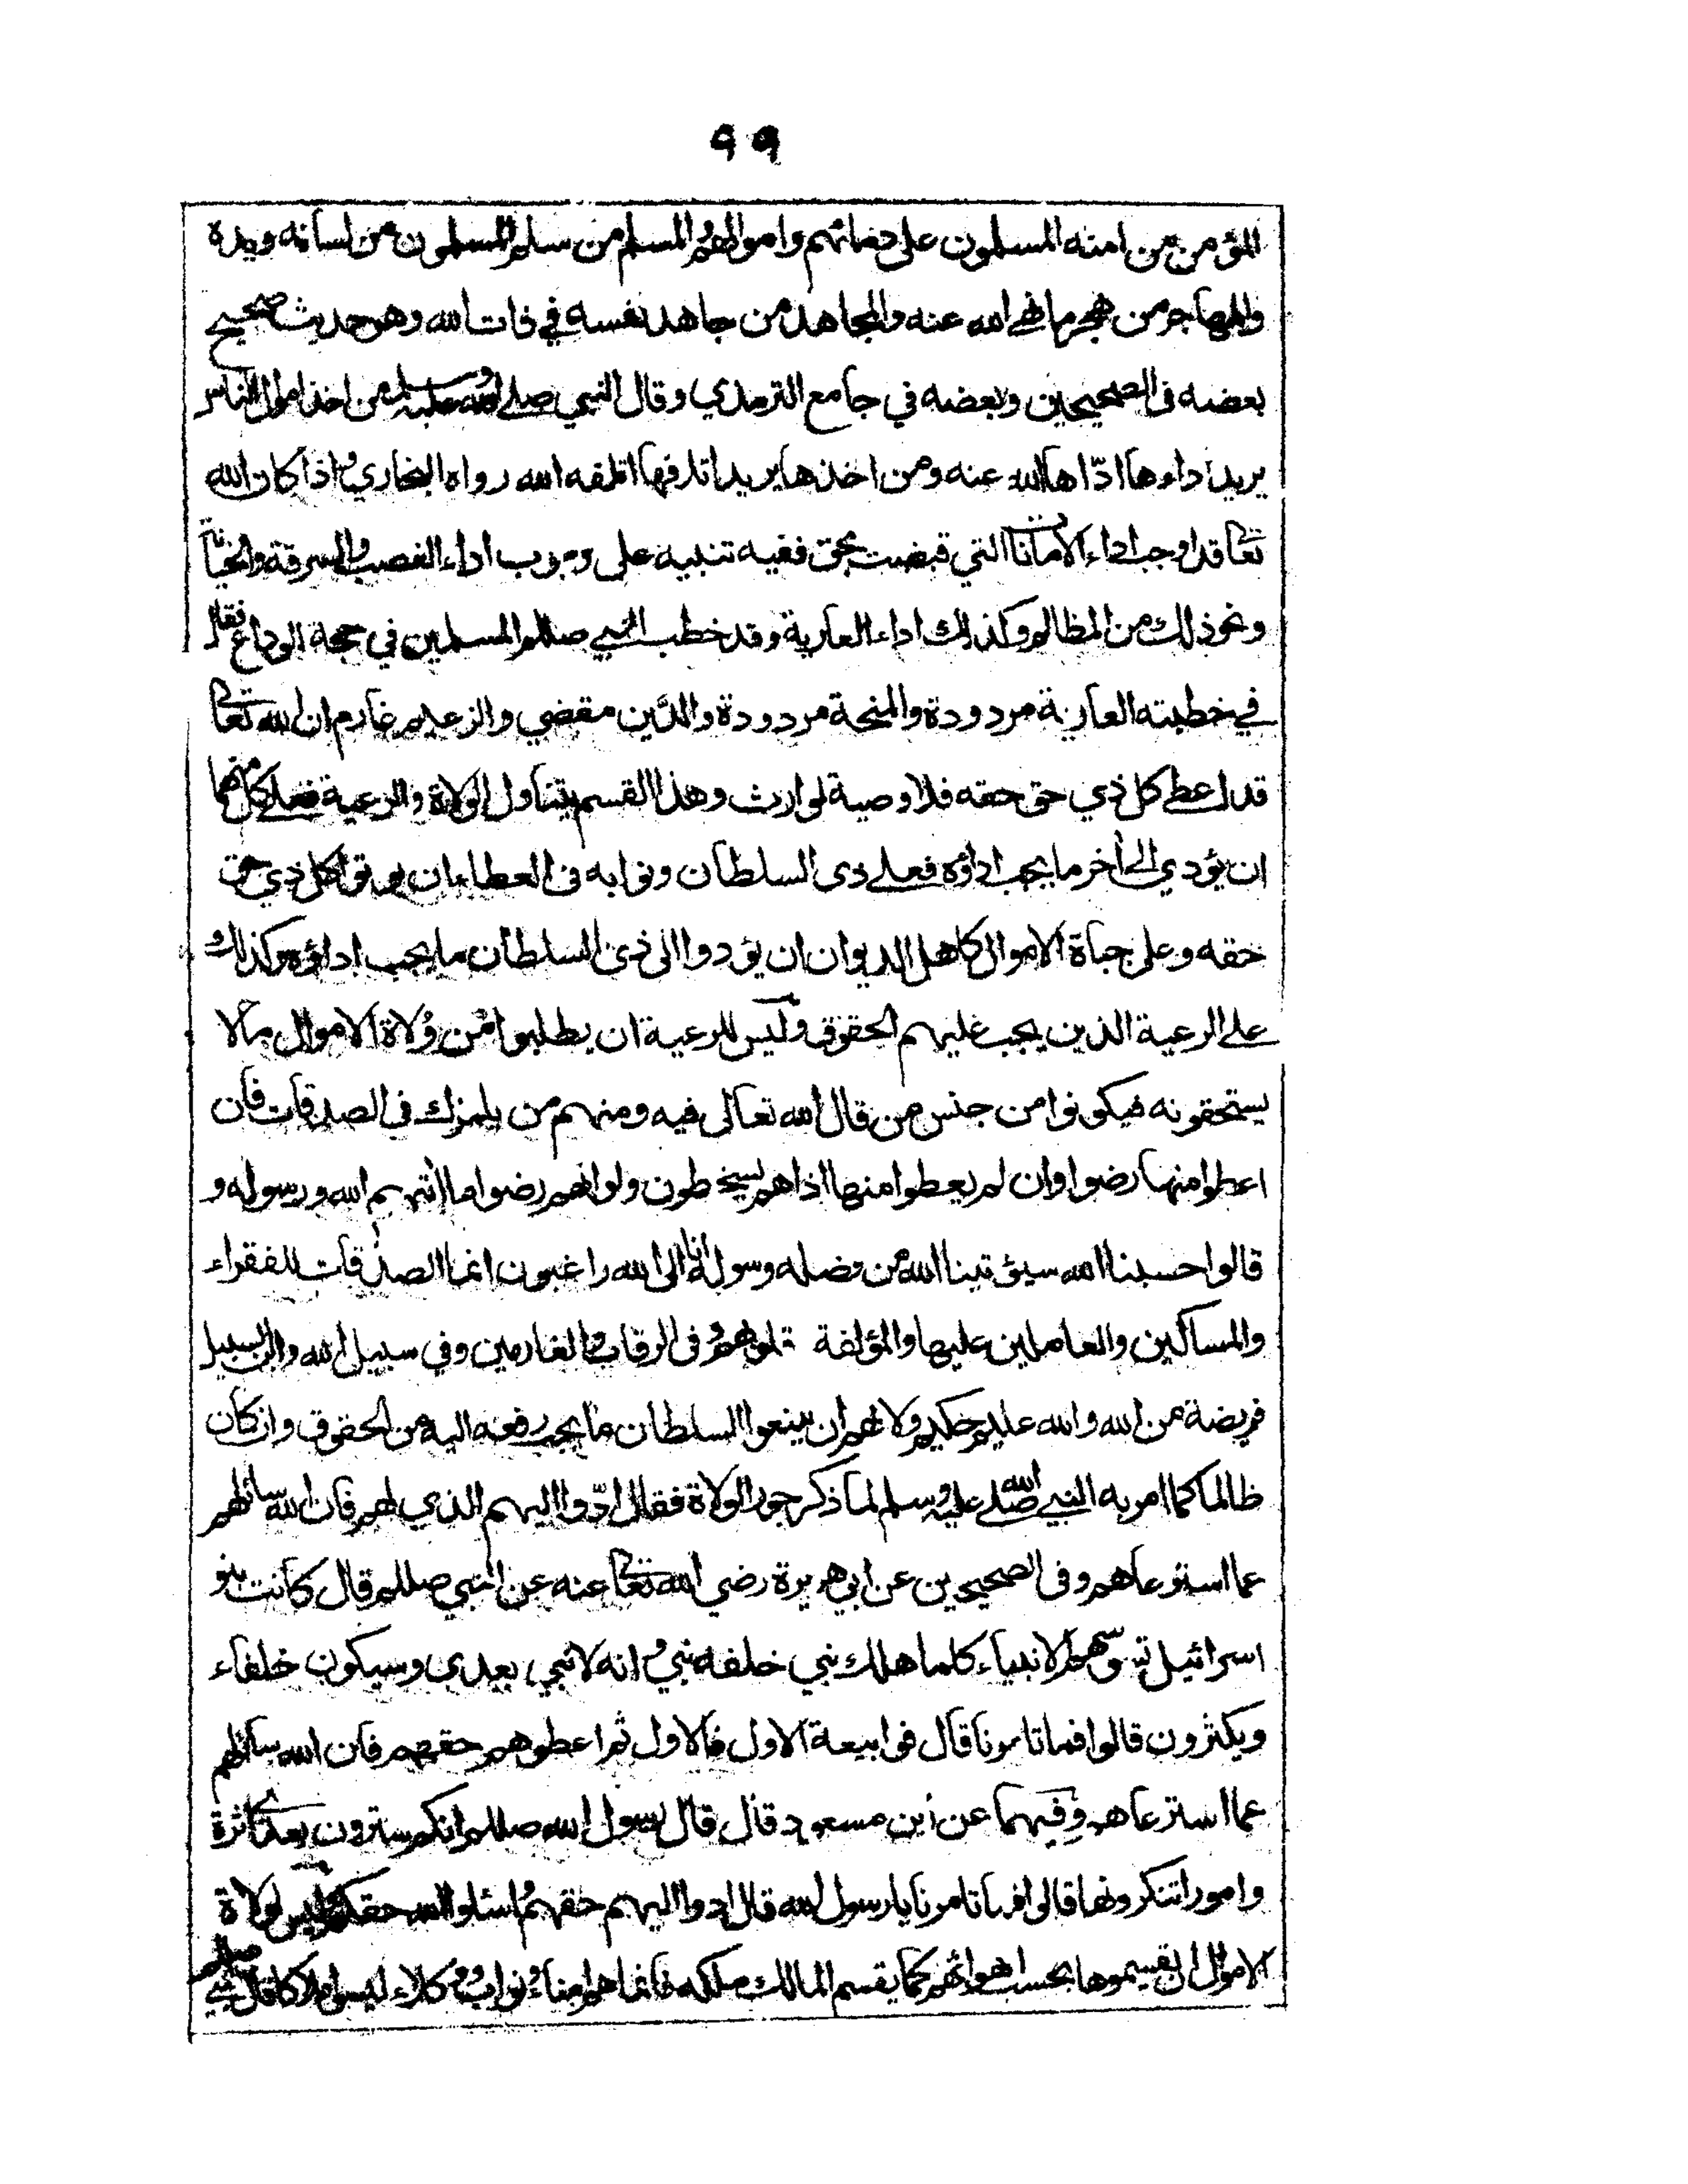 ٩٩
المؤمن من امنه المسلمون على دمائهم واموالهم والمسلم من سلم المسلمون من لسانه ويده
والمهاجر من هجر ما نهى الله عنه والمجاهد من جاهد نفسه في ذات الله وهو حديث صحيح
بعضه فى الصحيحين وبعضه في جامع الترمذي وقال النبي صلى الله عليه وسلم من اخذ اموال الناس
يريد اداءها ادّاها الله عنه ومن اخذها يريد اتلافها اتلفه الله رواه البخاري واذا كان الله
تعا قد اوجب اداء الامانات التي قبضت بحق ففيه تنبيه على وجوب اداء الغصب والسرقة والخيانة
ونحو ذلك من المظالم وكذلك اداء العارية وقد خطب النبي صللم المسلمين في حجة الوداع فقال
في خطبته العارية مردودة والمنحة مردودة والدَّين مقضي والزعيم غارم ان الله تعا
قد اعطى كل ذي حق حقه فلا وصية لوارث وهذا القسم يتناول الولاة والرعية فعلى كل منهما
ان يؤدي الى اخر ما يجب اداؤه فعلى ذى السلطان ونوابه فى العطاء ان يوتوا كل ذي حق
حقه وعلى جباة الاموال كاهل الديوان ان يؤدوا الى ذى السلطان ما يجب اداؤه وكذلك
على الرعية الذين يجب عليهم الحقوق وليس للرعية ان يطلبوا من وُلاة الاموال ما لا
يستحقونه فيكونوا من جنس من قال الله تعالى فيه ومنهم من يلمزك فى الصدقات فان
اعطوا منها رضوا وان لم يعطوا منها اذا هم يسخطون ولو انهم رضوا ما اٰتٰهم الله ورسوله و
قالوا حسبنا الله سيؤتينا الله من فضله ورسوله انا الى الله راغبون انما الصدقات للفقراء
والمساكين والعاملين عليها والمؤلفة قلوبهم وفى الرقاب والغارمين وفي سبيل الله وابن السبيل
فريضة من الله والله عليم حكيم ولا لهم ان يمنعوا السلطان ما يجب دفعه اليه من الحقوق وان كان
ظالما كما امر به النبي صلى الله عليه وسلم لما ذكر جور الولاة فقال ادّوا اليهم الذي لهم فان الله سائلهم
عما استرعاهم وفى الصحيحين عن ابي هريرة رضي الله تعا عنه عن النبي صللم قال كانت بنو
اسرائيل تسوسهم الانبياء كلما هلك نبي خلفه نبي وانه لا نبي بعدى وسيكون خلفاء
ويكثرون قالوا فما تامرنا قال فوا ببيعة الاول فالاول ثم اعطوهم حقهم فان الله سائلهم
عما استرعاهم وفيهما عن ابن مسعود قال قال رسول الله صللم انكم سترون بعدي اثرة
وامورا تنكرونها قالوا فما تامرنا يا رسول الله قال ادوا اليهم حقهم واسئلوا الله حقكم وليس لولاة
الاموال ان يقسموها بحسب اهوائهم كما يقسم المالك ملكه فانما هم امناء ونواب ووكلاء ليسوا ملاكا كما قال النبي صللم